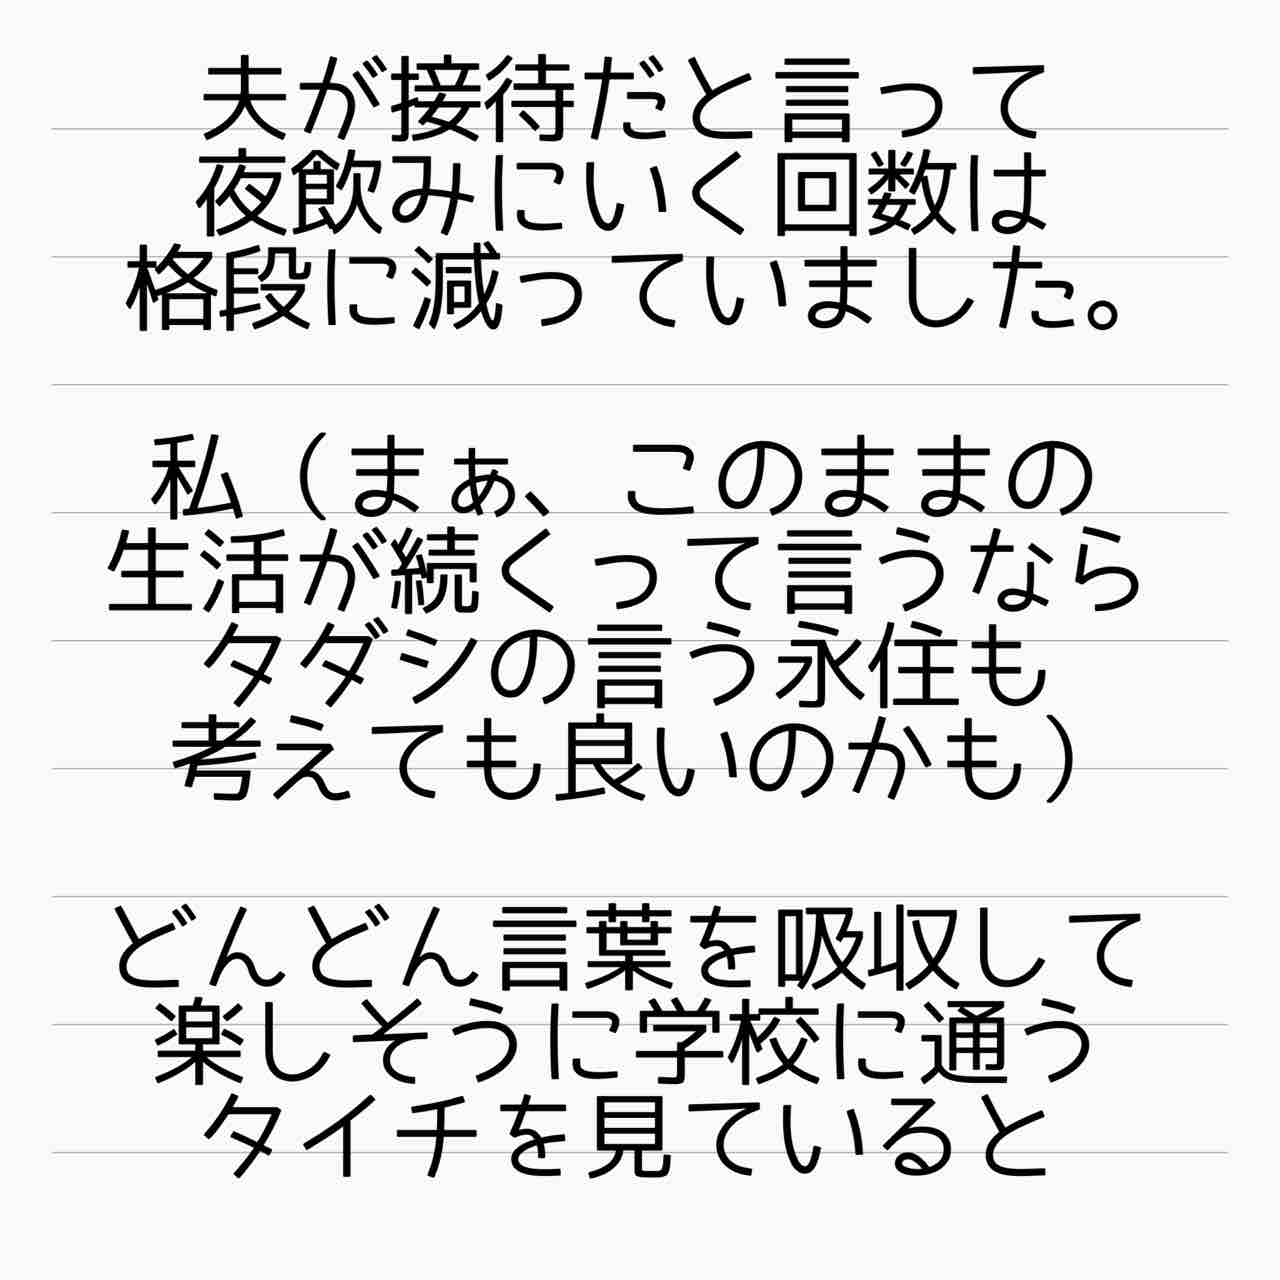 夫が接待だと言って
夜飲みにいく回数は
格段に減っていました。
私（まぁ、このままの
生活が続くって言うなら
タダシの言う永住も
考えても良いのかも）
どんどん言葉を吸収して
楽しそうに学校に通う
タイチを見ていると